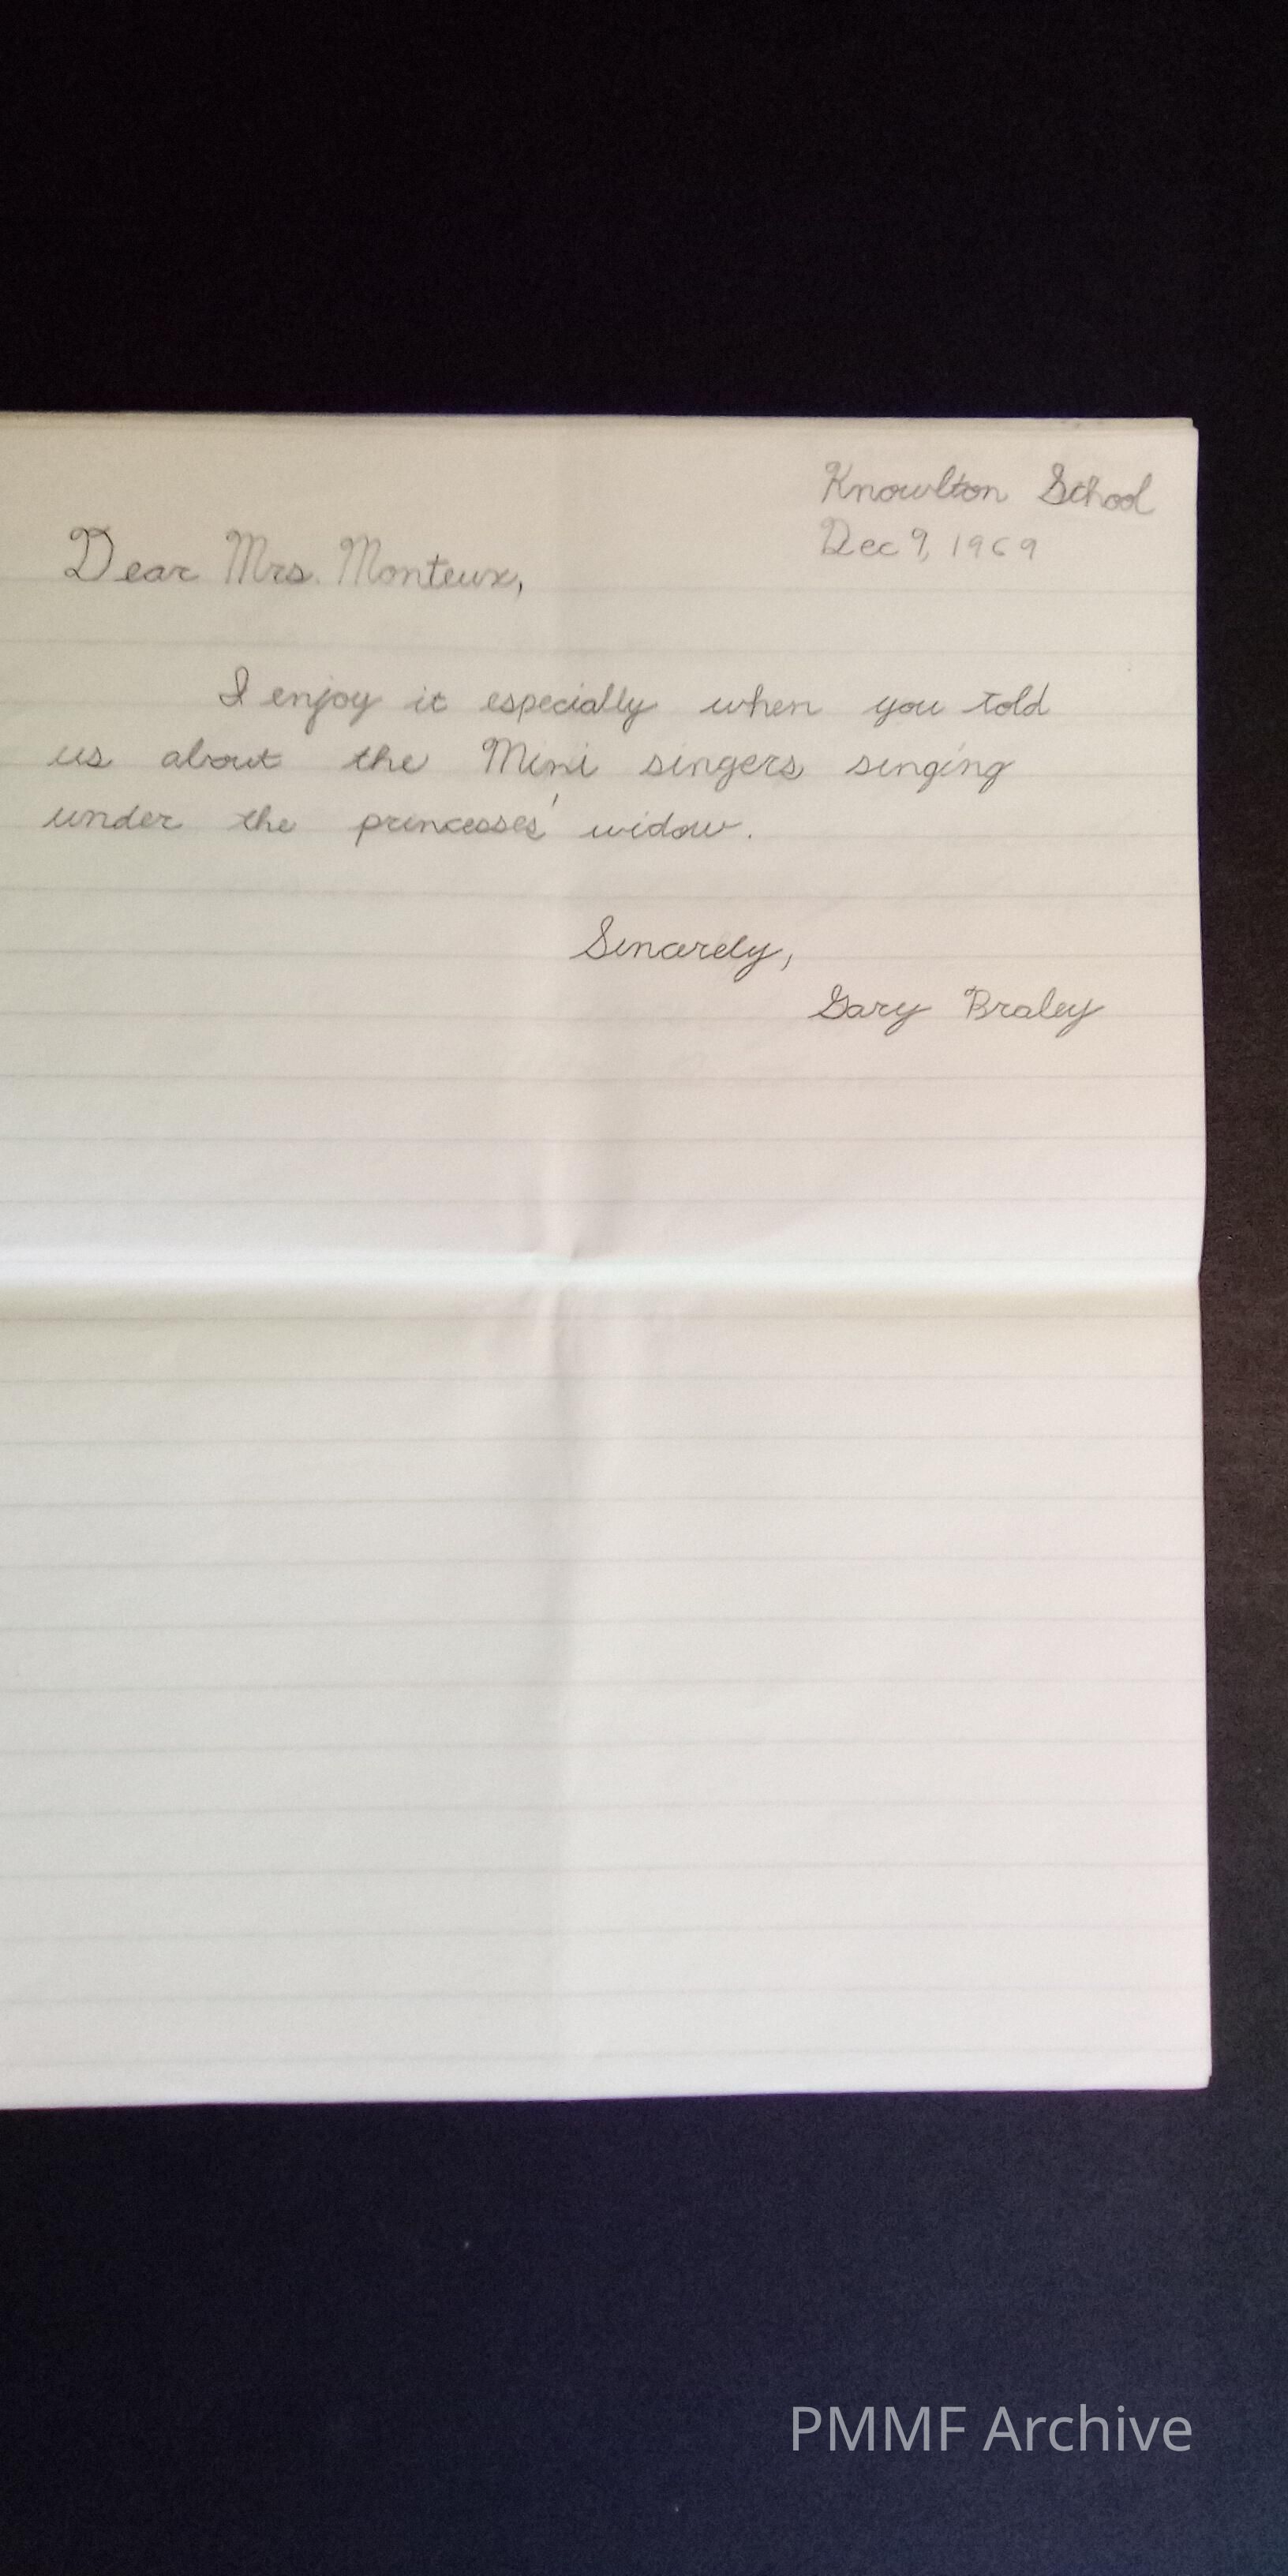 Knowlton School
Dec 9, 1969
Dear Mrs. Monteux,
I enjoy it especially when you told
us about the Mini singers singing
under the princesses' widow.
Sincerely,
Gary Braley
PMMF Archive